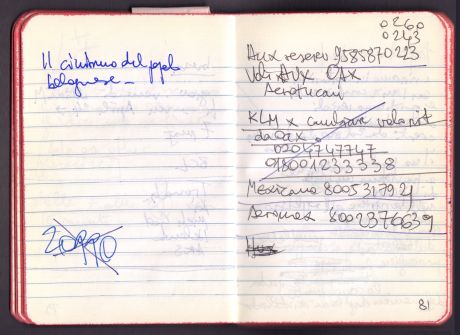 Il cinismo del popolo
bolognese –
20990
0260
0243
Aux reserv 9585870223
Volo AUX OAX
Aerotucan
KLM x cambiare volo not
da Oax.
0204747747
018001233338
Mexicana 8005317921
Aeromex 8002376639
81